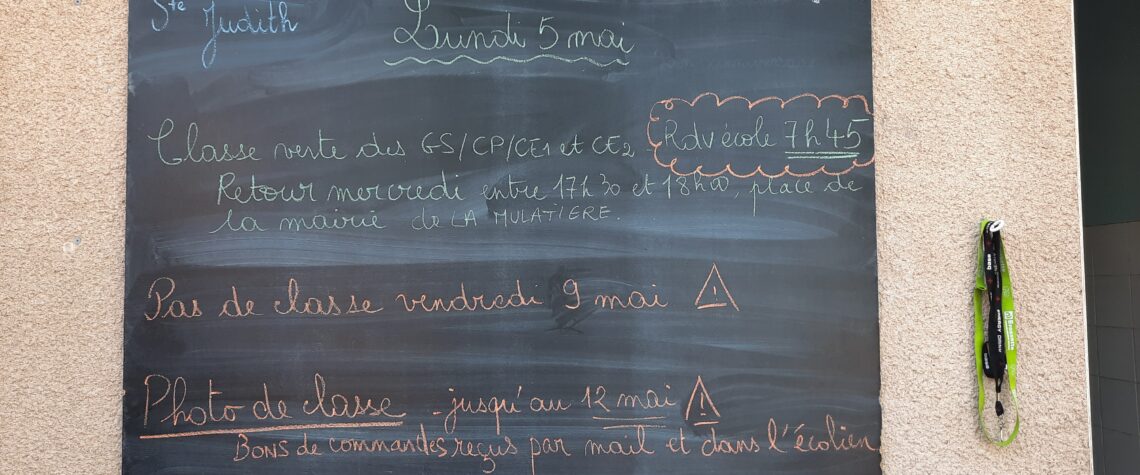 Ste Judith
Lundi 5 mai
Classe verte des GS/CP/CE1 et CE2 - Rdv école 7h45
Retour mercredi entre 17h30 et 18h00, place de
la mairie de LA MULATIERE.
Pas de classe vendredi 9 mai ⚠
Photo de classe - jusqu'au 12 mai ⚠
Bons de commandes reçus par mail et dans l'écolien